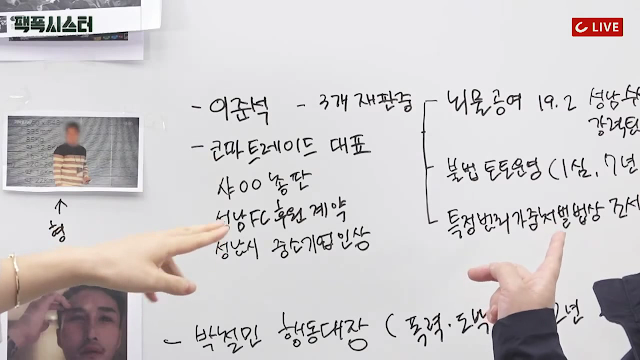 팩폭시스터
LIVE
- 이준석 - 3개 재판중
- 코마트레이드 대표
샤오미 총판
성남FC 후원 계약
성남시 중소기업인상
뇌물공여 19.2 성남수
강력팀
불법 토토운영 (1심, 7년
특정범죄가중처벌법상 조세
↑
형
- 박철민 행동대장 (폭력·도박 2년